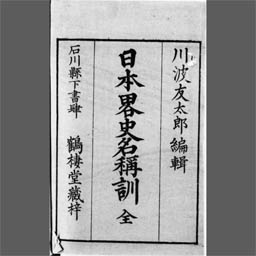 川波友太郎編輯
日本畧史名稱訓 全
石川縣下書肆 鶴棲堂藏梓